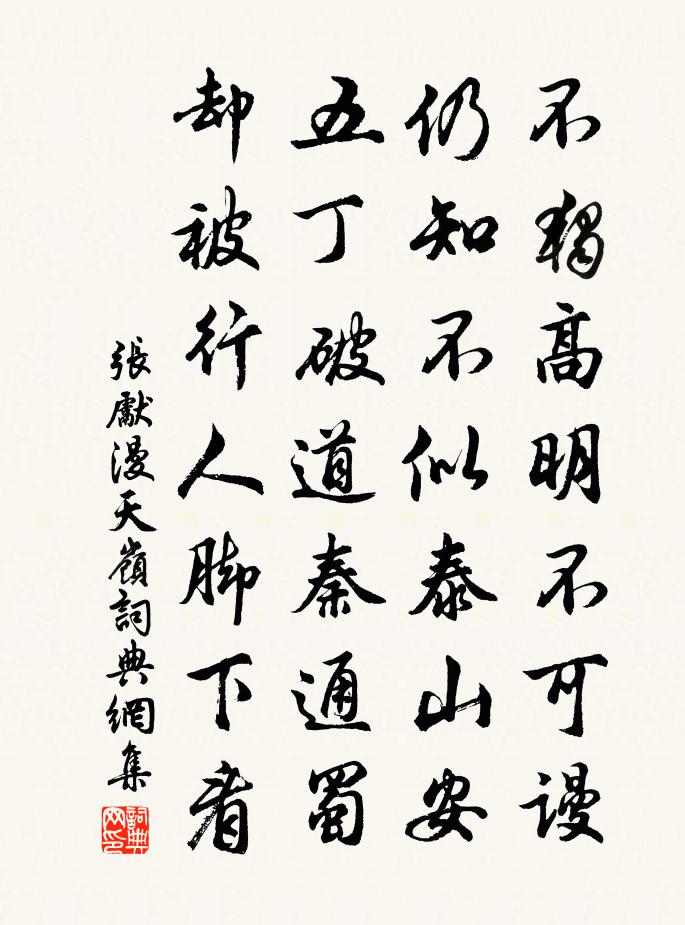 不獨高明不可謾
仍知不似泰山安
五丁破道秦通蜀
却被行人脚下看
張獻漫天嶺詞典網集
詞典网印